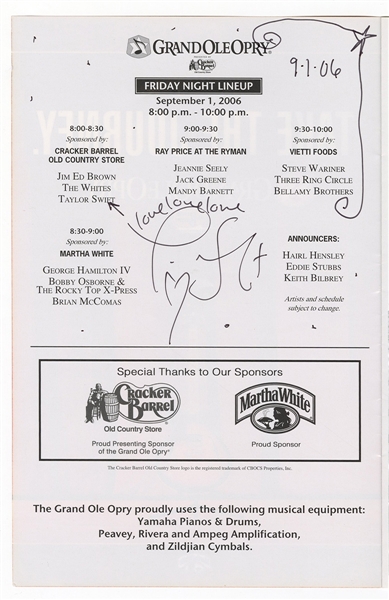 GRAND OLE OPRY®
PRESENTED BY
Cracker Barrel
Old Country Store
9-1-06
FRIDAY NIGHT LINEUP
September 1, 2006
8:00 p.m. - 10:00 p.m.
8:00-8:30
Sponsored by:
CRACKER BARREL
OLD COUNTRY STORE
JIM ED BROWN
THE WHITES
TAYLOR SWIFT
8:30-9:00
Sponsored by:
MARTHA WHITE
GEORGE HAMILTON IV
BOBBY OSBORNE &
THE ROCKY TOP X-PRESS
BRIAN MCCOMAS
9:00-9:30
Sponsored by:
RAY PRICE AT THE RYMAN
JEANNIE SEELY
JACK GREENE
MANDY BARNETT
love love love
9:30-10:00
Sponsored by:
VIETTI FOODS
STEVE WARINER
THREE RING CIRCLE
BELLAMY BROTHERS
ANNOUNCERS:
HAIRL HENSLEY
EDDIE STUBBS
KEITH BILBREY
Artists and schedule
subject to change.
Special Thanks to Our Sponsors
Cracker
Barrel
Old Country Store
Proud Presenting Sponsor
of the Grand Ole Opry®
Martha White
Proud Sponsor
The Cracker Barrel Old Country Store logo is the registered trademark of CBOCS Properties, Inc.
The Grand Ole Opry proudly uses the following musical equipment:
Yamaha Pianos & Drums,
Peavey, Rivera and Ampeg Amplification,
and Zildjian Cymbals.